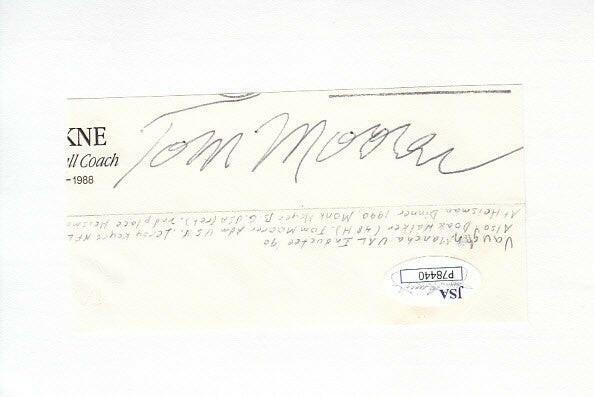 KNE
ll Coach
- 1988
Tom Moorer
Vaughn Mancha U AL Inductee 90
Also Doak Walker (48 H). Tom Moorer Adm USN. Leroy Keyes NFL
At Heisman Dinner 1990 Monk Meyer B.G. USA (ret), 2nd place Heisma
JSA
P78440